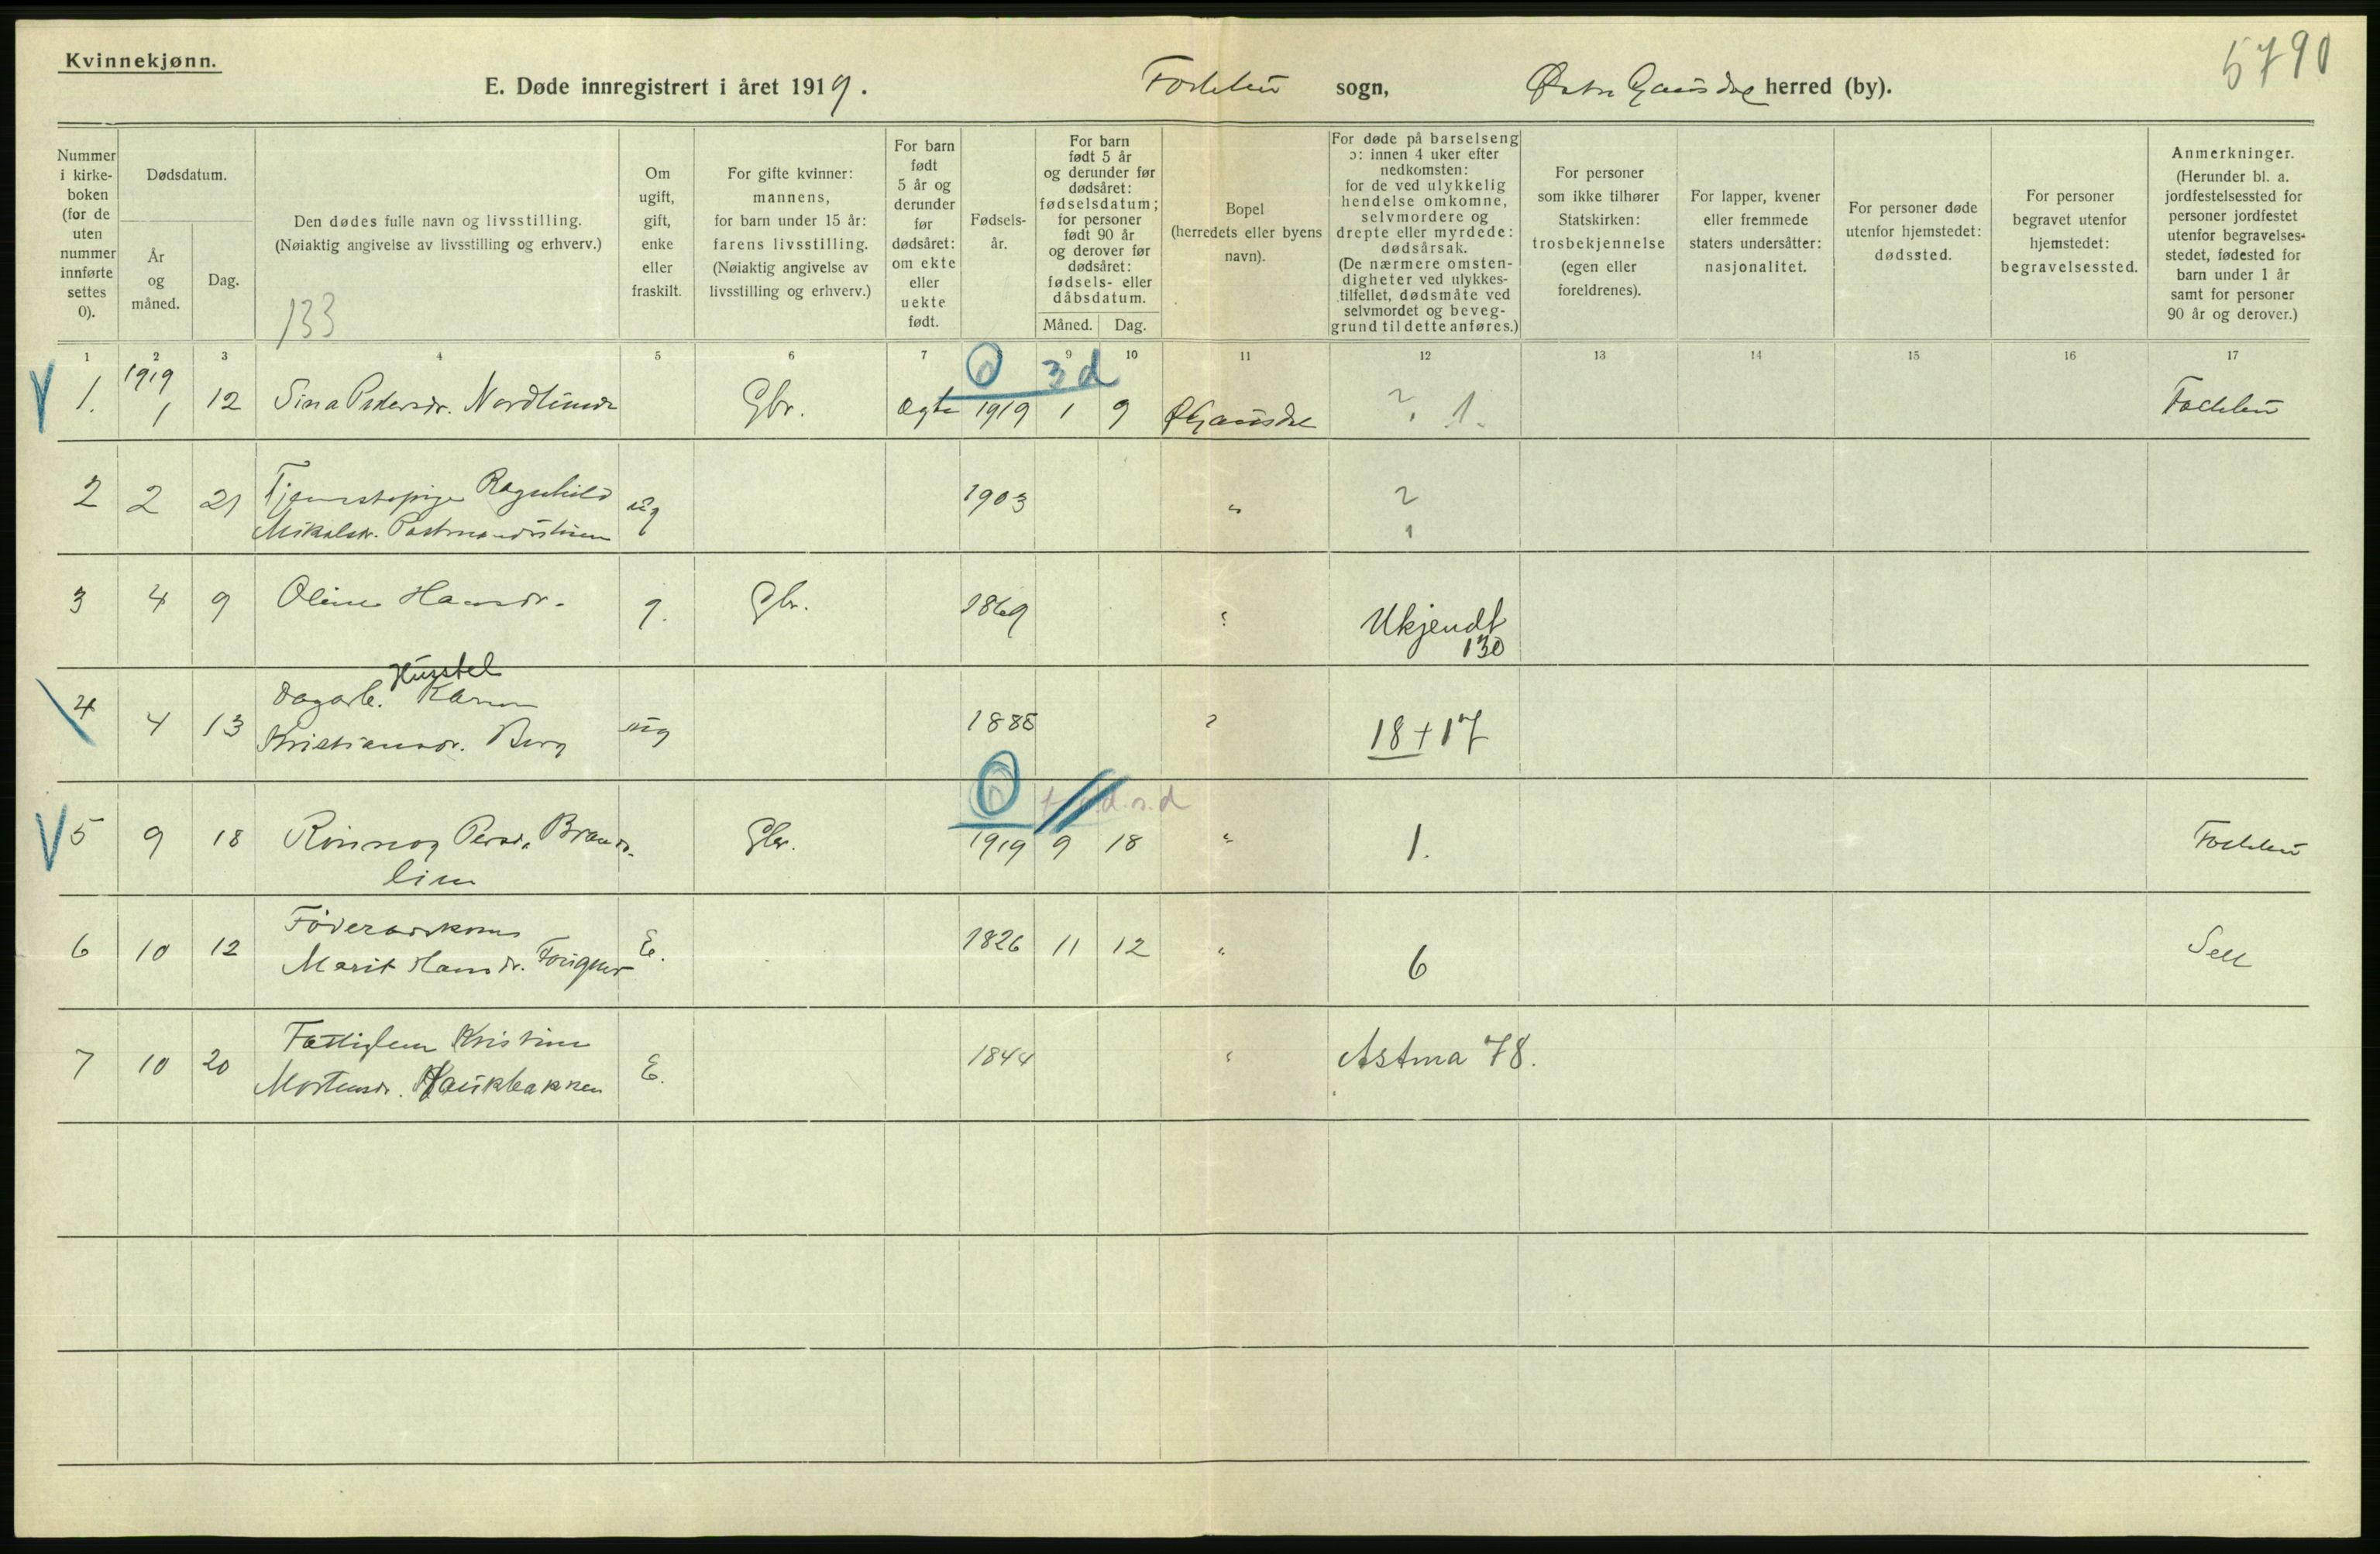 Kvinnekjønn.
5790
E. Døde innregistrert i året 1919. Follebu sogn, Østre Gausdal herred (by).
Nummer i kirke-boken (for de uten nummer innførte settes 0).
Dødsdatum.
År og måned.
Dag.
Den dødes fulle navn og livsstilling.
(Nøiaktig angivelse av livsstilling og erhverv.)
133
Om ugift, gift, enke eller fraskilt.
For gifte kvinner: mannens, for barn under 15 år: farens livsstilling. (Nøiaktig angivelse av livsstilling og erhverv.)
For barn født 5 år og derunder før dødsåret: om ekte eller uekte født.
Fødsels-år.
For barn født 5 år og derunder før dødsåret: fødselsdatum; for personer født 90 år og derover før dødsåret: fødsels- eller dåbsdatum.
Måned. Dag.
Bopel (herredets eller byens navn).
For døde på barselseng ɔ: innen 4 uker efter nedkomsten: for de ved ulykkelig hendelse omkomne, selvmordere og drepte eller myrdede: dødsårsak. (De nærmere omsten-digheter ved ulykkes-tilfellet, dødsmåte ved selvmordet og beveg-grund til dette anføres.)
For personer som ikke tilhører Statskirken: trosbekjennelse (egen eller foreldrenes).
For lapper, kvener eller fremmede staters undersåtter: nasjonalitet.
For personer døde utenfor hjemstedet: dødssted.
For personer begravet utenfor hjemstedet: begravelsessted.
Anmerkninger. (Herunder bl. a. jordfestelsessted for personer jordfestet utenfor begravelses-stedet, fødested for barn under 1 år samt for personer 90 år og derover.)
1 2 3 4 5 6 7 9 10 11 12 13 14 15 16 17
0 3 d
1919
1. 1 12 Sina Pedersdr. Nordlinde Gbr. Ægte 1919 1 9 Ø Gausdal ? 1. Follebu
2 2 21 Tjenestepige Ragnhild ug 1903 " ?
Mikalsdr. 1
3 4 9 Oline Hansdr. g. Gbr. 1869 " Ukjendt
130
Husstel
4 4 13 Dagarb. Karen ug 1885 " 18+17
Kristiansdr. Berg
0 d
5 9 18 Rønnog Persdr. Brands- Gbr. 1919 9 18 " 1. Follebu
lien
6 10 12 Føderaadskone E. 1826 11 12 " 6 Sell
Marit Hansdr.
7 10 20 Fattiglem Kristine E. 1844 " Astma 78.
Mortensdr. Haukbakken